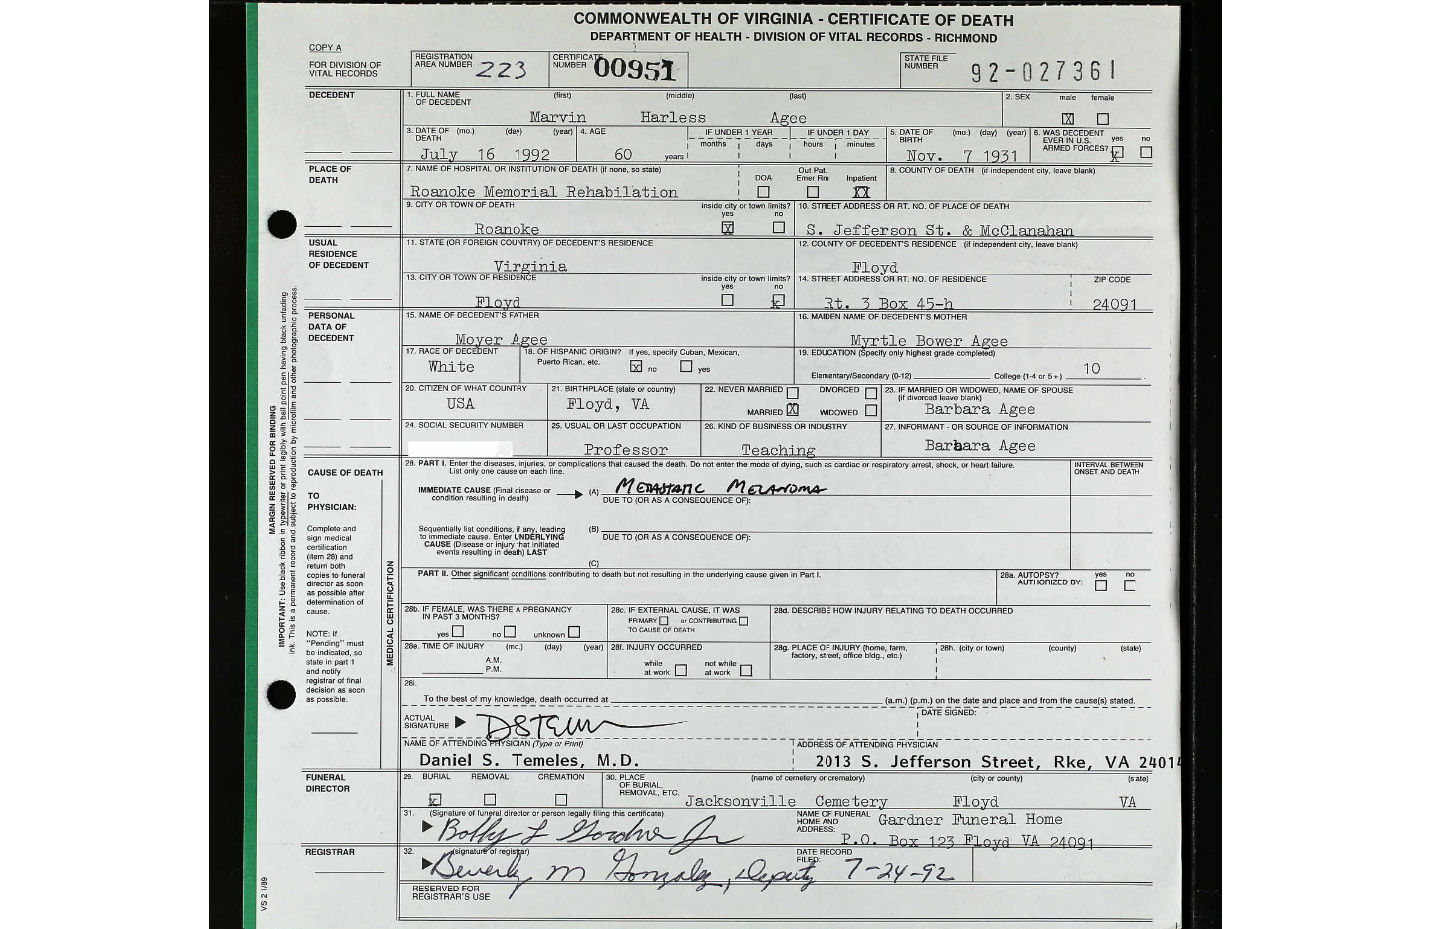 COMMONWEALTH OF VIRGINIA - CERTIFICATE OF DEATH
DEPARTMENT OF HEALTH - DIVISION OF VITAL RECORDS - RICHMOND
COPY A
FOR DIVISION OF VITAL RECORDS
REGISTRATION AREA NUMBER 223
CERTIFICATE NUMBER 00951
STATE FILE NUMBER 92-027361
DECEDENT
1. FULL NAME OF DECEDENT (first) (middle) (last)
Marvin Harless Agee
2. SEX male X female
3. DATE OF DEATH (mo.) (day) (year)
July 16 1992
4. AGE 60 years
IF UNDER 1 YEAR months days
IF UNDER 1 DAY hours minutes
5. DATE OF BIRTH (mo.) (day) (year)
Nov. 7 1931
6. WAS DECEDENT EVER IN U.S. ARMED FORCES? yes x no
PLACE OF DEATH
7. NAME OF HOSPITAL OR INSTITUTION OF DEATH (if none, so state)
Roanoke Memorial Rehabilation
DOA Out Pat. Emer Rm Inpatient XX
8. COUNTY OF DEATH (if independent city, leave blank)
9. CITY OR TOWN OF DEATH
Roanoke
inside city or town limits? yes X no
10. STREET ADDRESS OR RT. NO. OF PLACE OF DEATH
S. Jefferson St. & McClanahan
USUAL RESIDENCE OF DECEDENT
11. STATE (OR FOREIGN COUNTRY) OF DECEDENT'S RESIDENCE
Virginia
12. COUNTY OF DECEDENT'S RESIDENCE (if independent city, leave blank)
Floyd
13. CITY OR TOWN OF RESIDENCE
Floyd
inside city or town limits? yes no x
14. STREET ADDRESS OR RT. NO. OF RESIDENCE
Rt. 3 Box 45-h
ZIP CODE
24091
PERSONAL DATA OF DECEDENT
15. NAME OF DECEDENT'S FATHER
Moyer Agee
16. MAIDEN NAME OF DECEDENT'S MOTHER
Myrtle Bower Agee
17. RACE OF DECEDENT
White
18. OF HISPANIC ORIGIN? If yes, specify Cuban, Mexican, Puerto Rican, etc. X no yes
19. EDUCATION (Specify only highest grade completed)
Elementary/Secondary (0-12) College (1-4 or 5+) 10
20. CITIZEN OF WHAT COUNTRY
USA
21. BIRTHPLACE (state or country)
Floyd, VA
22. NEVER MARRIED DIVORCED
MARRIED X WIDOWED
23. IF MARRIED OR WIDOWED, NAME OF SPOUSE (if divorced leave blank)
Barbara Agee
24. SOCIAL SECURITY NUMBER
25. USUAL OR LAST OCCUPATION
Professor
26. KIND OF BUSINESS OR INDUSTRY
Teaching
27. INFORMANT - OR SOURCE OF INFORMATION
Barbara Agee
MARGIN RESERVED FOR BINDING
IMPORTANT: Use black ribbon in typewriter or print legibly with ball point pen having black unfading
ink. This is a permanent record and subject to reproduction by microfilm and other photographic process.
CAUSE OF DEATH
TO PHYSICIAN:
Complete and
sign medical
certification
(item 28) and
return both
copies to funeral
director as soon
as possible after
determination of
cause.
NOTE: If
"Pending" must
be indicated, so
state in part 1
and notify
registrar of final
decision as soon
as possible.
MEDICAL CERTIFICATION
28. PART I. Enter the diseases, injuries, or complications that caused the death. Do not enter the mode of dying, such as cardiac or respiratory arrest, shock, or heart failure.
List only one cause on each line.
INTERVAL BETWEEN ONSET AND DEATH
IMMEDIATE CAUSE (Final disease or condition resulting in death) (A) METASTATIC MELANOMA
DUE TO (OR AS A CONSEQUENCE OF):
Sequentially list conditions, if any, leading to immediate cause. Enter UNDERLYING CAUSE (Disease or injury that initiated events resulting in death) LAST
(B)
DUE TO (OR AS A CONSEQUENCE OF):
(C)
PART II. Other significant conditions contributing to death but not resulting in the underlying cause given in Part I.
28a. AUTOPSY? AUTHORIZED BY: yes no
28b. IF FEMALE, WAS THERE A PREGNANCY IN PAST 3 MONTHS?
yes no unknown
28c. IF EXTERNAL CAUSE, IT WAS
PRIMARY or CONTRIBUTING
TO CAUSE OF DEATH
28d. DESCRIBE HOW INJURY RELATING TO DEATH OCCURRED
28e. TIME OF INJURY (mo.) (day) (year)
A.M.
P.M.
28f. INJURY OCCURRED
while at work not while at work
28g. PLACE OF INJURY (home, farm, factory, street, office bldg., etc.)
28h. (city or town) (county) (state)
28i.
To the best of my knowledge, death occurred at (a.m.) (p.m.) on the date and place and from the cause(s) stated.
ACTUAL SIGNATURE
DATE SIGNED:
NAME OF ATTENDING PHYSICIAN (Type or Print)
Daniel S. Temeles, M.D.
ADDRESS OF ATTENDING PHYSICIAN
2013 S. Jefferson Street, Rke, VA 24014
FUNERAL DIRECTOR
29. BURIAL x REMOVAL CREMATION
30. PLACE OF BURIAL, REMOVAL, ETC. (name of cemetery or crematory) (city or county) (state)
Jacksonville Cemetery Floyd VA
31. (Signature of funeral director or person legally filing this certificate)
Bobby L Gardner Jr
NAME OF FUNERAL HOME AND ADDRESS:
Gardner Funeral Home
P.O. Box 123 Floyd VA 24091
REGISTRAR
32. (signature of registrar)
Beverly M Gonzalez, Deputy
DATE RECORD FILED: 7-24-92
RESERVED FOR REGISTRAR'S USE
VS 2 1/89